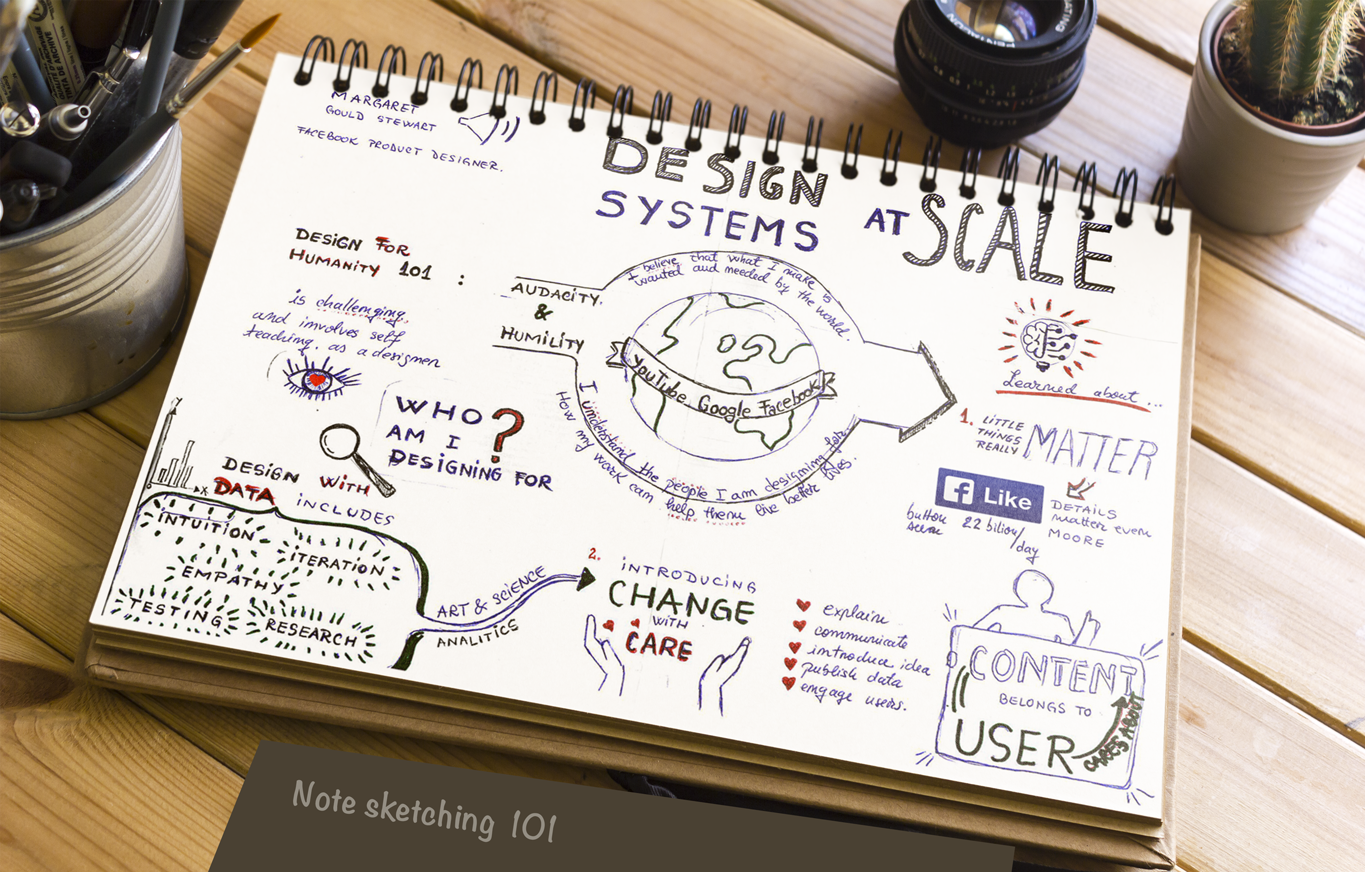 MARGARET
GOULD STEWART
FACEBOOK PRODUCT DESIGNER.
DESIGN
SYSTEMS AT SCALE
DESIGN FOR
HUMANITY 101 :
is challenging,
and involves self
teaching. as a designer
AUDACITY,
&
HUMILITY
I believe that what I make is
wanted and needed by the world.
YouTube, Google Facebook
I understand the people I am designing for
How my work can help them live better lives.
WHO
AM I
DESIGNING FOR
?
DESIGN WITH
DATA INCLUDES
INTUITION
ITERATION
EMPATHY
TESTING
RESEARCH
ART & SCIENCE
ANALITICS
Learned about ...
1. LITTLE
THINGS
REALLY
MATTER
f Like
button
seen 22 bilion/
day
DETAILS
matter even
MOORE
2. INTRODUCING
CHANGE
WITH
CARE
explain
communicate
introduce idea
publish data
engage users.
CONTENT
BELONGS TO
USER
CARES ABOUT
Note sketching 101